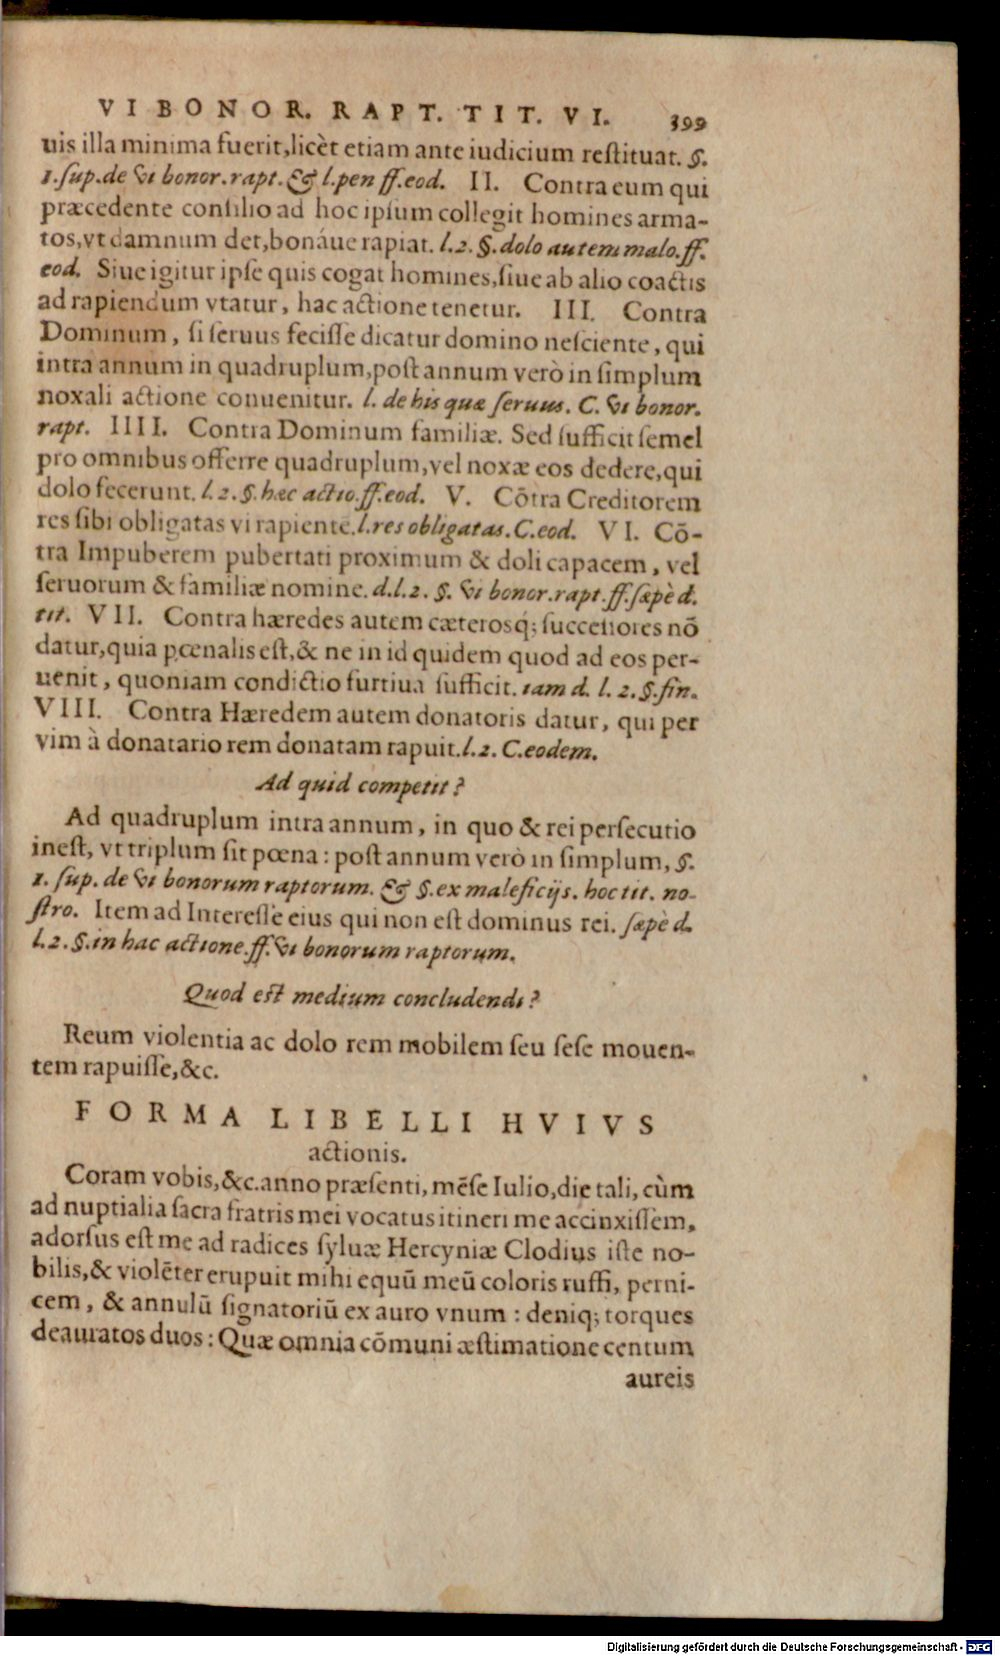 VI BONOR. RAPT. TIT. VI. 399
uis illa minima fuerit,licèt etiam ante iudicium reſtituat. §.
1.ſup.de vi bonor.rapt. & l.pen ff.eod. II. Contra eum qui
præcedente conſilio ad hoc ipſum collegit homines arma-
tos,vt damnum det,bonáue rapiat. l.2. §.dolo autem malo.ff.
eod. Siue igitur ipſe quis cogat homines,ſiue ab alio coactis
ad rapiendum vtatur, hac actione tenetur. III. Contra
Dominum, ſi ſeruus feciſſe dicatur domino neſciente, qui
intra annum in quadruplum,poſt annum verò in ſimplum
noxali actione conuenitur. l. de his quæ ſeruus. C. vi bonor.
rapt. IIII. Contra Dominum familiæ. Sed ſufficit ſemel
pro omnibus offerre quadruplum,vel noxæ eos dedere,qui
dolo fecerunt. l. 2. §. hæc actio.ff.eod. V. Cōtra Creditorem
res ſibi obligatas vi rapientē.l.res obligatas.C.eod. VI. Cō-
tra Impuberem pubertati proximum & doli capacem, vel
ſeruorum & familiæ nomine. d.l.2. §. vi bonor.rapt.ff.ſæpè d.
tit. VII. Contra hæredes autem cæterosq́; ſucceſſores nō
datur,quia pœnalis eſt,& ne in id quidem quod ad eos per-
uenit, quoniam condictio furtiua ſufficit. iam d. l. 2. §.fin.
VIII. Contra Hæredem autem donatoris datur, qui per
vim à donatario rem donatam rapuit.l.2. C.eodem.
Ad quid competit?
Ad quadruplum intra annum, in quo & rei perſecutio
ineſt, vt triplum ſit pœna: poſt annum verò in ſimplum, §.
1. ſup. de vi bonorum raptorum. & §.ex maleficijs. hoc tit. no-
ſtro. Item ad Intereſſe eius qui non eſt dominus rei. ſæpè d.
l.2. §.in hac actione.ff.vi bonorum raptorum.
Quod eſt medium concludendi?
Reum violentia ac dolo rem mobilem ſeu ſeſe mouen-
tem rapuiſſe,&c.
FORMA LIBELLI HVIVS
actionis.
Coram vobis,&c.anno præſenti, mēſe Iulio,die tali, cùm
ad nuptialia ſacra fratris mei vocatus itineri me accinxiſſem,
adorſus eſt me ad radices ſyluæ Hercyniæ Clodius iſte no-
bilis,& violēter erupuit mihi equū meū coloris ruffi, perni-
cem, & annulū ſignatoriū ex auro vnum: deniq; torques
deauratos duos: Quæ omnia cōmuni æſtimatione centum
aureis
Digitalisierung gefördert durch die Deutsche Forschungsgemeinschaft - DFG